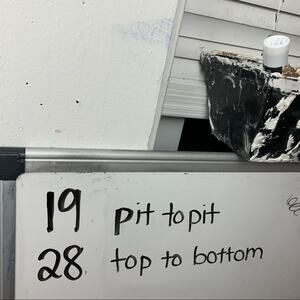 19 pit to pit
28 top to bottom